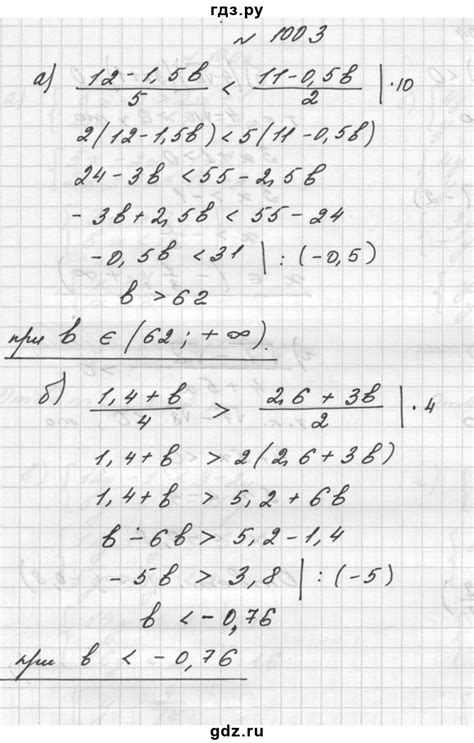 гдз.ру
№ 1003
а) (12-1,5в)/5 < (11-0,5в)/2 | ·10
2(12-1,5в)<5(11-0,5в)
24-3в <55-2,5в
-3в+2,5в < 55-24
-0,5в <31 | : (-0,5)
в >62
при в ∈ (62; +∞).
б) (1,4+в)/4 > (2,6+3в)/2 | ·4
1,4+в > 2(2,6+3в)
1,4+в > 5,2+6в
в-6в > 5,2-1,4
-5в > 3,8 | : (-5)
в <-0,76
при в < -0,76
gdz.ru